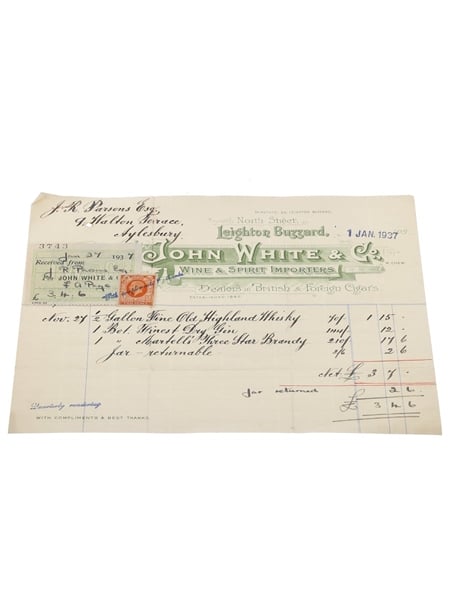 J. R. Parsons Esq
9 Walton Terrace,
Aylesbury
LEIGHTON BUZZARD.
North Street,
Leighton Buzzard,
1 JAN. 1937
JOHN WHITE & Co
WINE & SPIRIT IMPORTERS
Dealers in British & Foreign Cigars
3743
Jan 27 1937
Received from
J R Parsons Esq
JOHN WHITE &
£ 3 4 6
Nov. 27 ½ Gallon Fine Old Highland Whisky 70/- 1 15 -
1 Bot. Finest Dry Gin 12 -
1 " Martell's Three Star Brandy 17 6
Jar - returnable 2/6 2 6
Net £ 3 7 -
Jar returned 2 6
£ 3 4 6
Quarterly rendering
WITH COMPLIMENTS & BEST THANKS.